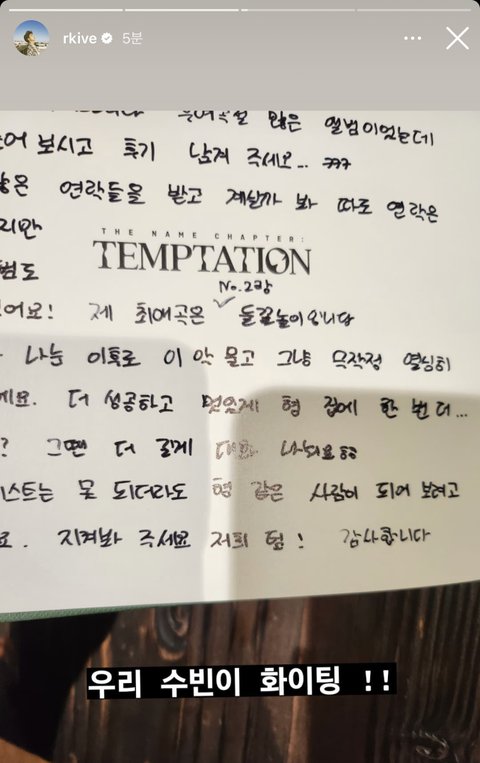 rkive 5분
많은 앨범이었는데
보시고 후기 남겨 주세요... ㅋㅋㅋ
연락들을 받고 계실까 봐 따로 연락은
THE NAME CHAPTER:
TEMPTATION
No.2랑
제 최애곡은 돌림놀이입니다
나눈 이후로 이 악 물고 그냥 무작정 열심히
더 성공하고 멋있게 형 집에 한 번 더...
? 그땐 더 길게 대화 나눠요ㅎㅎ
못 되더라도 형 같은 사람이 되어 보려고
요. 지켜봐 주세요 저희 팀! 감사합니다
우리 수빈이 화이팅 !!